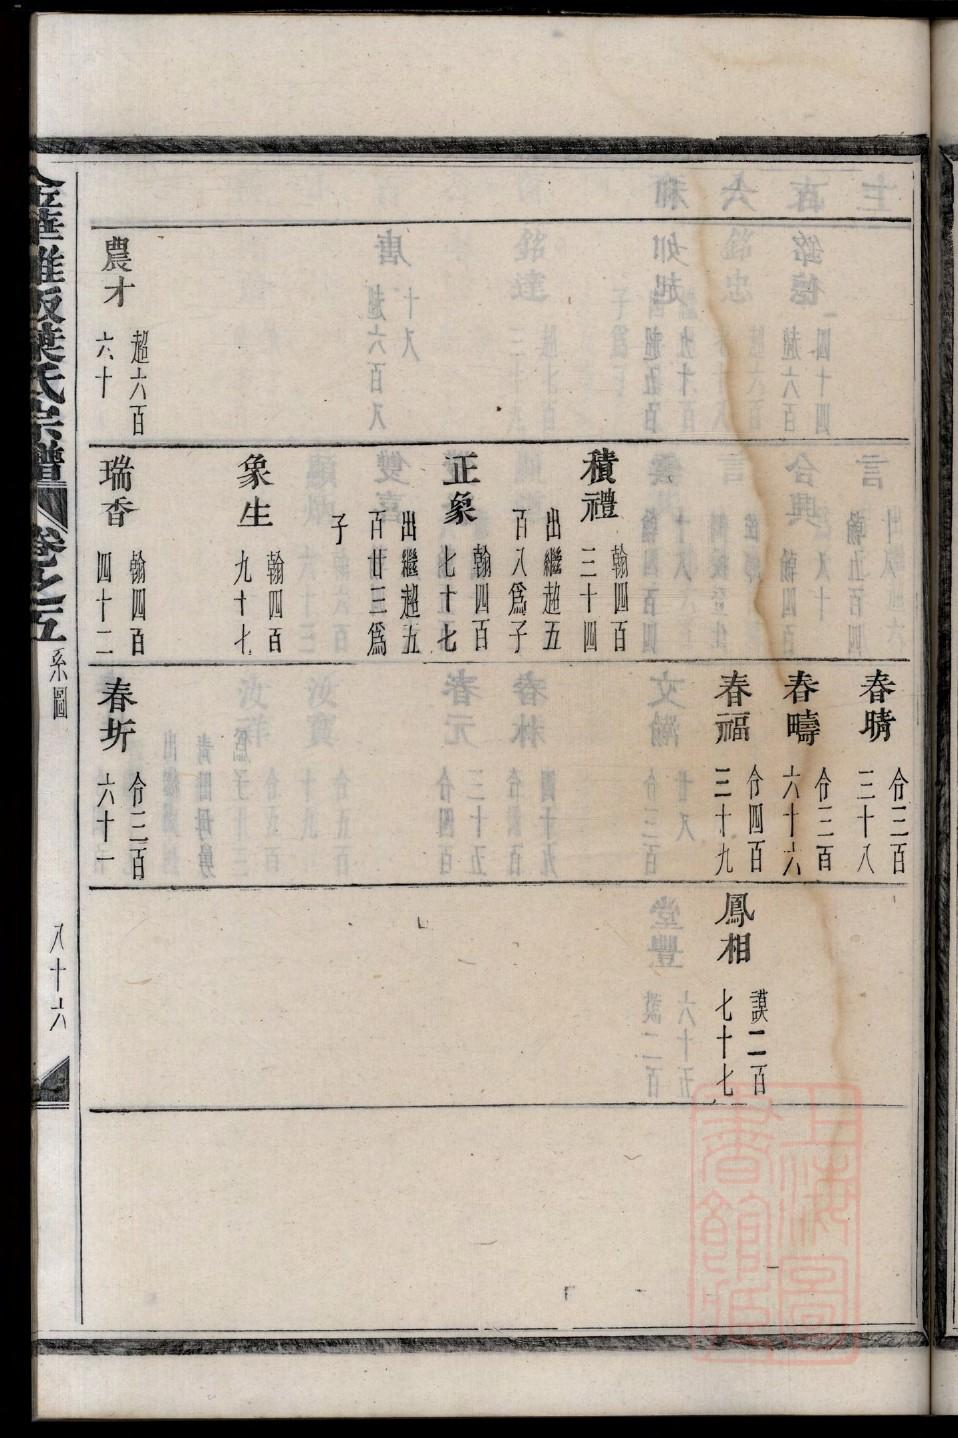 農才
超六百
六十
積禮
翰四百
三十四
出繼超五
百八爲子
正象
翰四百
七十七
出繼超五
百廿三爲
子
象生
翰四百
九十七
瑞香
翰四百
四十二
春晴
令三百
三十八
春疇
令三百
六十六
春福
令四百
三十九
春圻
令三百
六十一
鳳相
謨二百
七十七
葉氏宗譜
卷之五
系圖
八十六
上海圖
書館藏